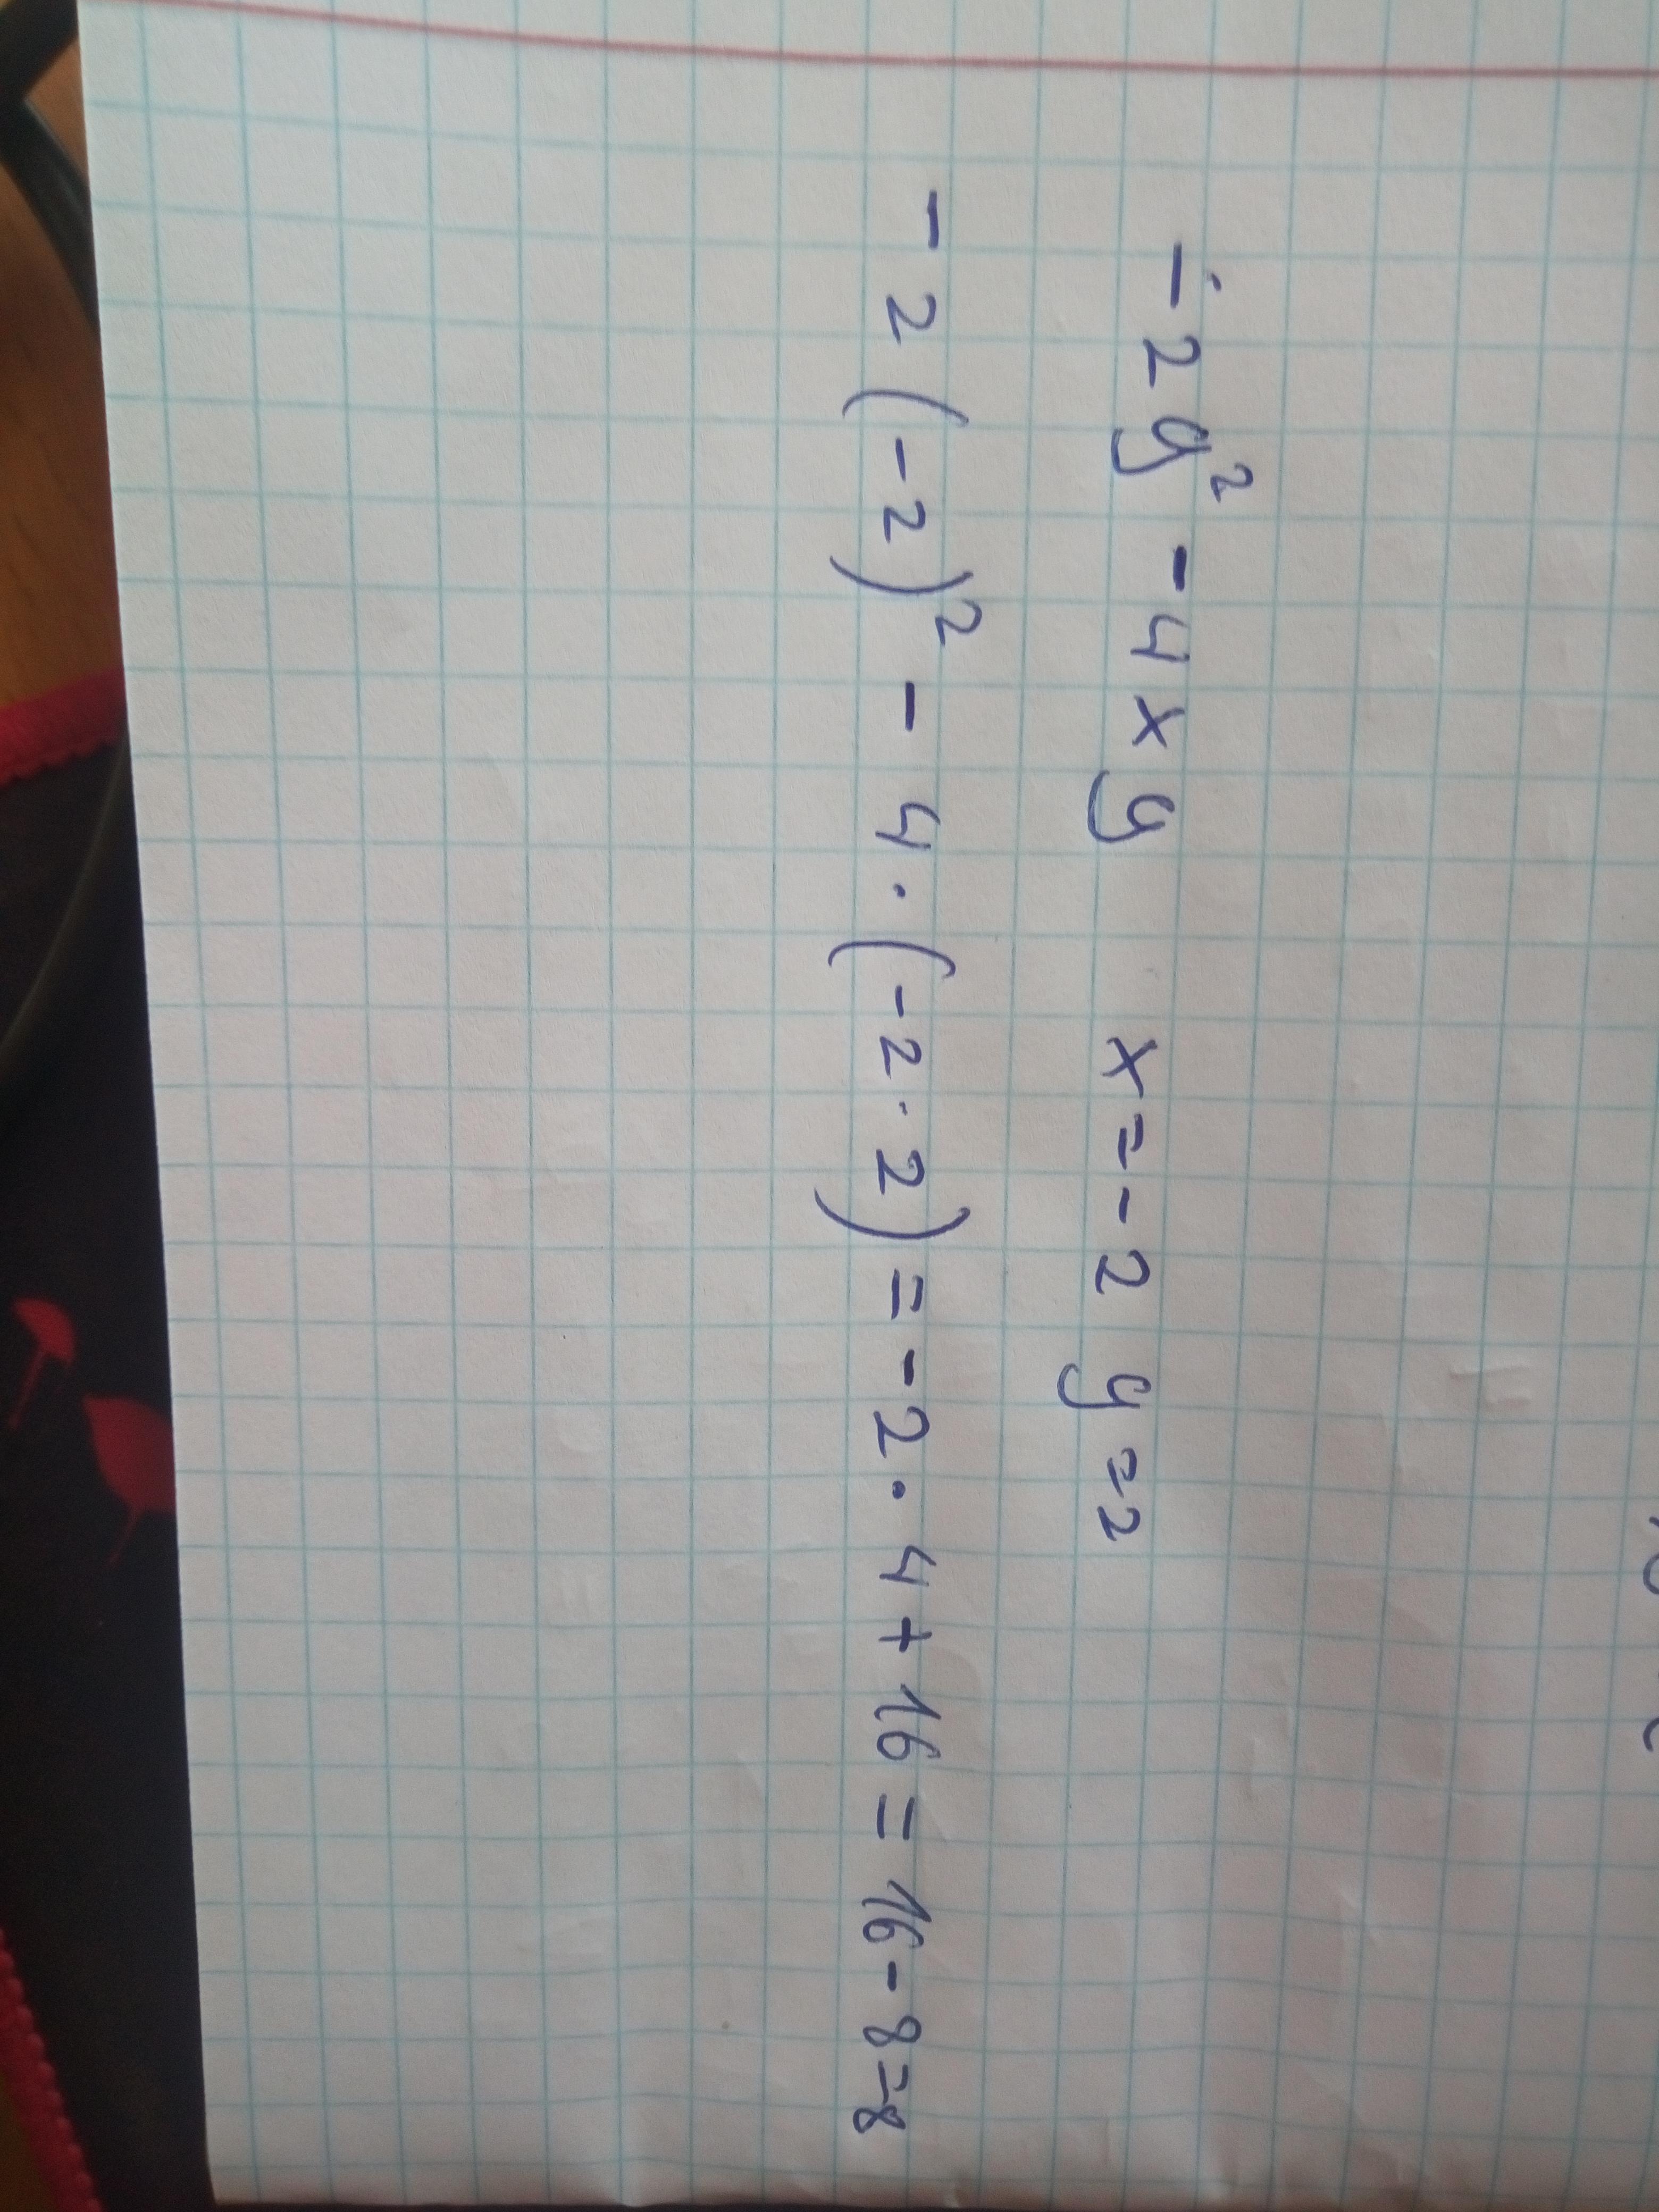 -2y² -4xy x=-2 y=2
-2(-2)² - 4·(-2·2) = -2·4+16 = 16-8=8